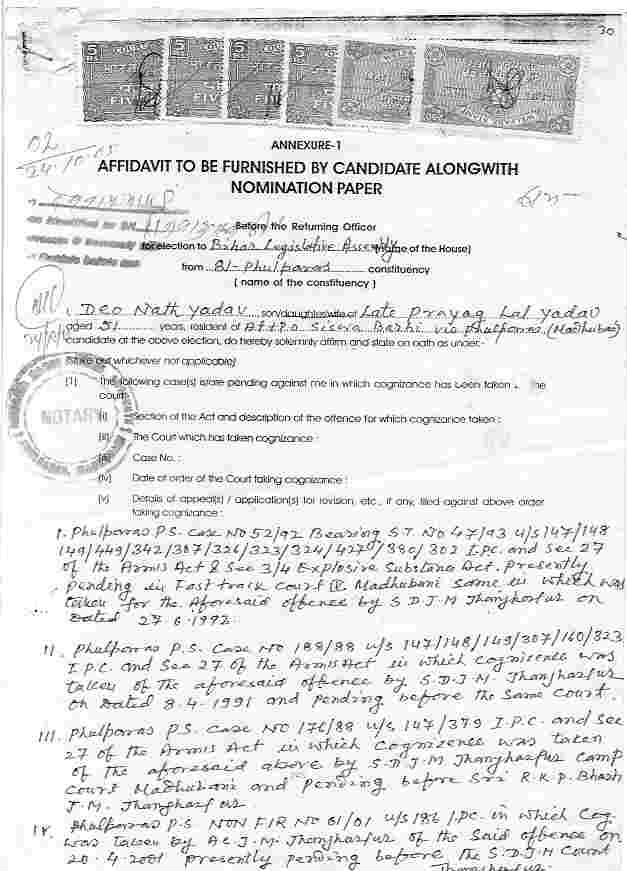 30
5 5 5 5
FIVE FIVE FIVE FIVE
INDIA
02
24.10.05
ANNEXURE-1
AFFIDAVIT TO BE FURNISHED BY CANDIDATE ALONGWITH
NOMINATION PAPER
Before the Returning Officer
for election to Bihar Legislative Assembly (name of the House)
from 81- Phulparas constituency
( name of the constituency )
I, Deo Nath Yadav son/daughter/wife of Late Prayag Lal Yadav
aged 51 years, resident of At+P.O Siswa Barhi via Phulparas (Madhubani)
candidate at the above election, do hereby solemnly affirm and state on oath as under:-
(strike out whichever not applicable)
(1) The following case(s) is/are pending against me in which cognizance has been taken the
court
NOTARY
(i) Section of the Act and description of the offence for which cognizance taken :
(ii) The Court which has taken cognizance :
(iii) Case No. :
(iv) Date of order of the Court taking cognizance :
(v) Details of appeal(s) / application(s) for revision, etc., if any, filed against above order
taking cognizance :
I. Phulparas P.S. Case No 52/92 Bearing S.T. No 47/93 u/s 147/148
149/449/342/307/326/323/324/427/380/302 I.P.C. and Sec 27
of the Arms Act & Sec 3/4 Explosive Substance Act. Presently
pending in Fast track Court Madhubani same in which was
taken for the Aforesaid offence by S.D.J.M Jhanjharpur on
Dated 27.6.1992
II. Phulparas P.S. Case No 188/88 u/s 147/148/149/307/160/323
I.P.C. and Sec 27 of the Arms Act in which Cognizence was
taken of the aforesaid offence by S.D.J.M. Jhanjharpur
on Dated 8.4.1991 and pending before the Same Court.
III. Phulparas P.S. Case No 176/88 u/s 147/379 I.P.C. and Sec
27 of the Arms Act in which Cognizence was taken
of the aforesaid above by S.D.J.M Jhanjharpur Camp
Court Madhubani and pending before Sri R.K.P. Bhash
J.M. Jhanjharpur
IV. Phulparas P.S. NON FIR No 61/01 u/s 186 I.P.C. in which Cog-
was taken by A.C.J.M. Jhanjharpur of the Said offence on
20.4.2001 presently pending before the S.D.J.M Court
Jhanjharpur.